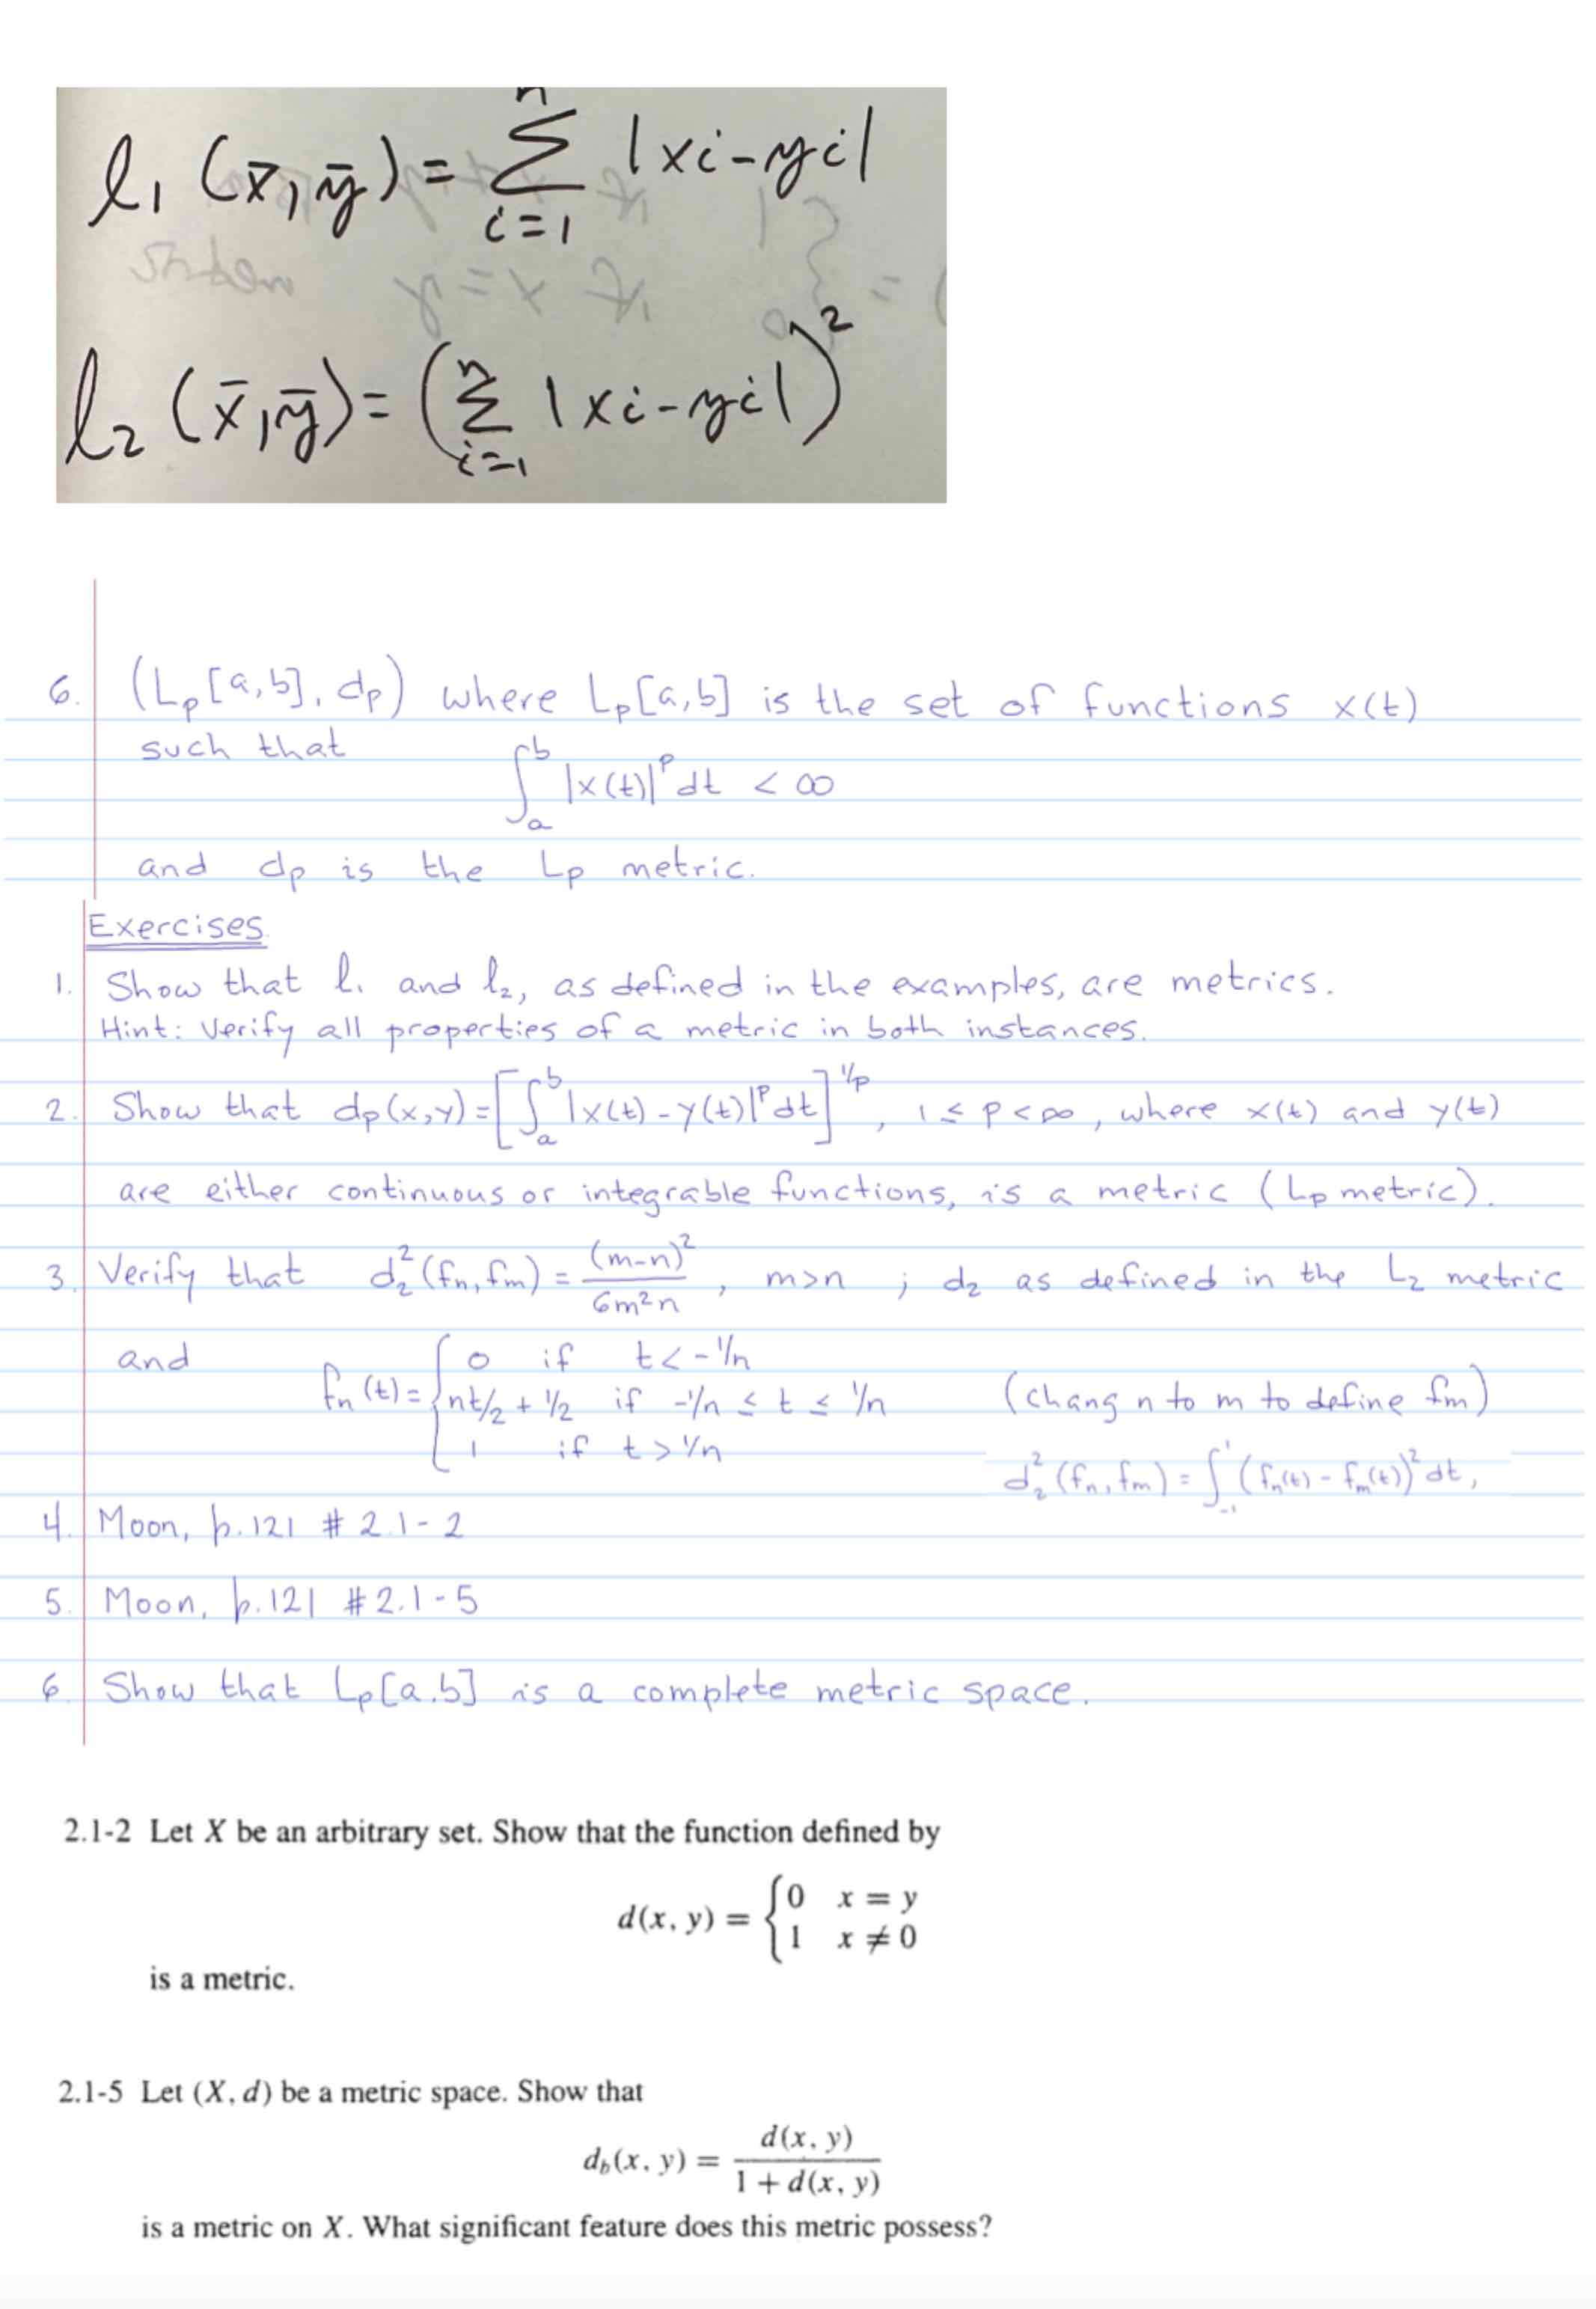 l₁ (x̄, ȳ) = Σ_{i=1}^{n} |xi - yi|
l₂ (x̄, ȳ) = (Σ_{i=1}^{n} |xi - yi|)²
6. (Lp[a,b], dp) where Lp[a,b] is the set of functions x(t)
such that
∫_a^b |x(t)|^p dt < ∞
and dp is the Lp metric.
Exercises.
1. Show that l₁ and l₂, as defined in the examples, are metrics.
Hint: Verify all properties of a metric in both instances.
2. Show that dp(x,y) = [∫_a^b |x(t) - y(t)|^p dt]^{1/p}, 1 ≤ p < ∞, where x(t) and y(t)
are either continuous or integrable functions, is a metric (Lp metric).
3. Verify that d₂²(fn, fm) = (m-n)²/6m²n, m>n ; d₂ as defined in the L₂ metric
and fn(t) = { 0 if t < -1/n
nt/2 + 1/2 if -1/n ≤ t ≤ 1/n (chang n to m to define fm)
1 if t > 1/n
d₂²(fn, fm) = ∫_{-1}^{1} (fn(t) - fm(t))² dt,
4. Moon, p.121 # 2.1-2
5. Moon, p.121 # 2.1-5
6. Show that Lp[a.b] is a complete metric space.
2.1-2 Let X be an arbitrary set. Show that the function defined by
d(x, y) = { 0 x = y
1 x ≠ 0
is a metric.
2.1-5 Let (X, d) be a metric space. Show that
d_b(x, y) = d(x, y) / 1 + d(x, y)
is a metric on X. What significant feature does this metric possess?